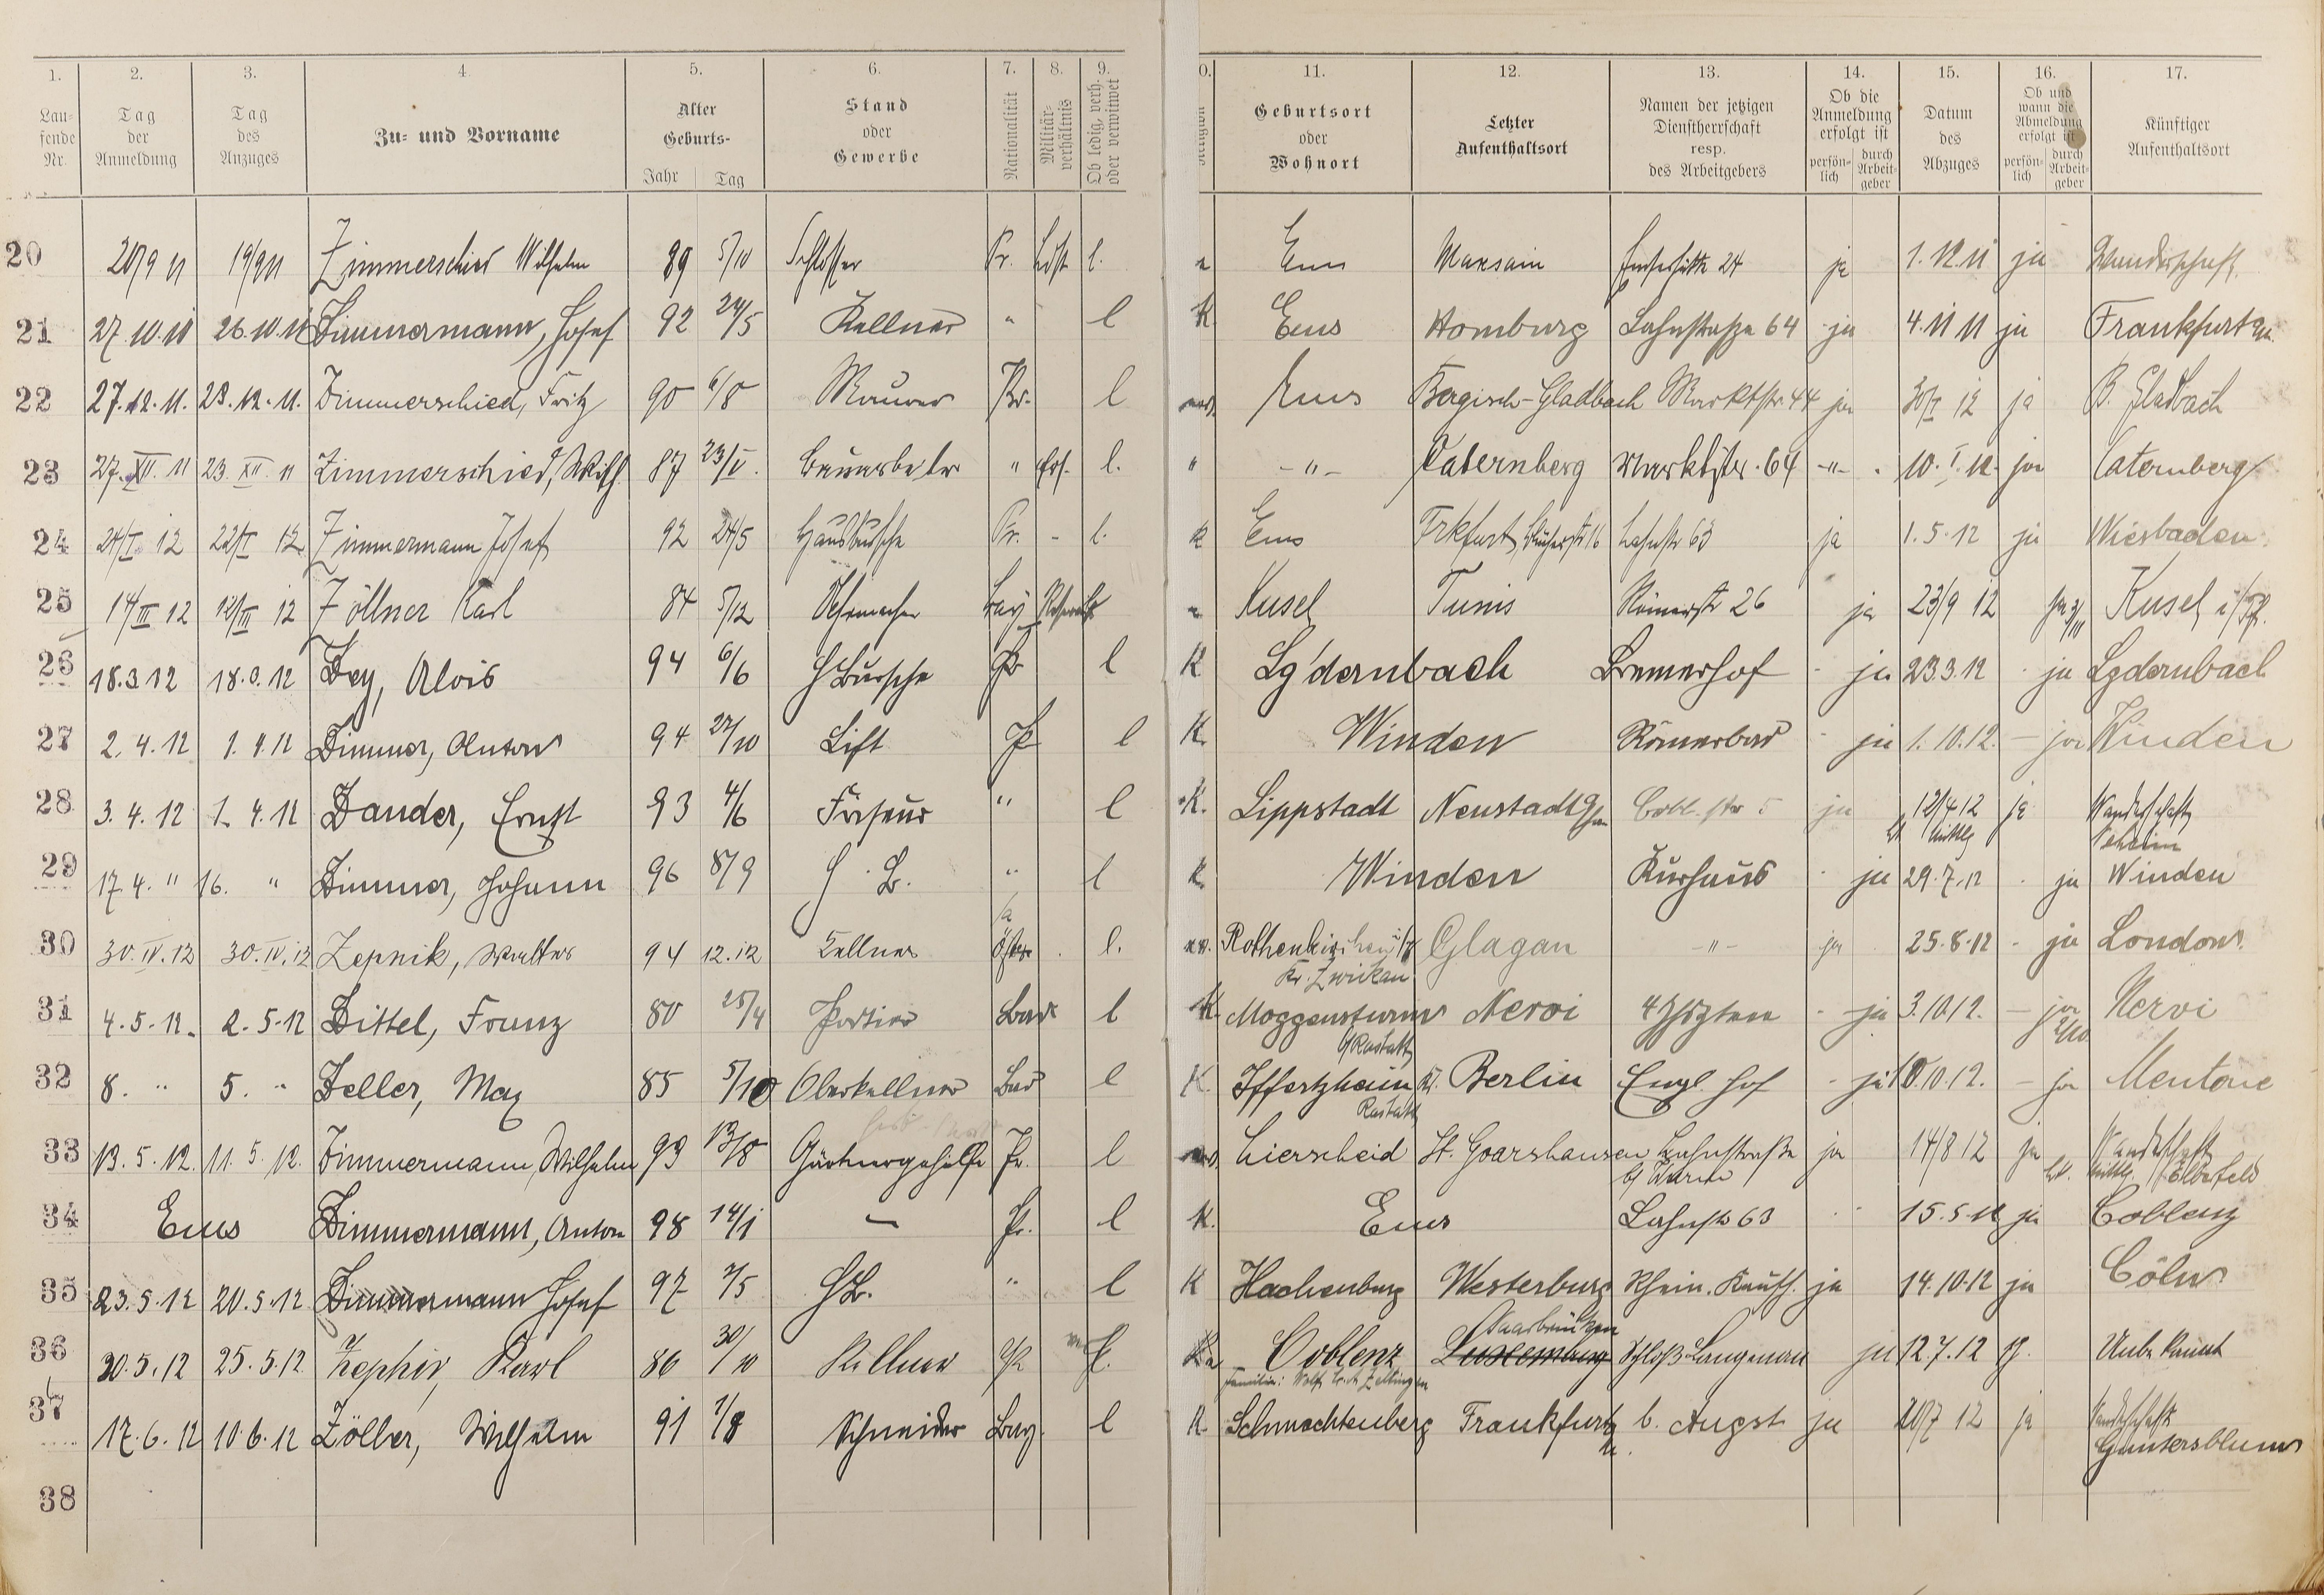 1. 2. 3. 4 5. 6. 7. 8. 9. 0. 11. 12. 13. 14. 15. 16. 17.
Lau-
fende
Nr.
Tag
der
Anmeldung
Tag
des
Anzuges
Zu- und Vorname
Alter
Geburts-
Jahr Tag
Stand
oder
Gewerbe
Nationalität
Militär-
verhältnis
Ob ledig, verh.
oder verwitwet
Geburtsort
oder
Wohnort
Letzter
Aufenthaltsort
Namen der jetzigen
Dienstherrschaft
resp.
des Arbeitgebers
Ob die
Anmeldung
erfolgt ist
persön-
lich
durch
Arbeit-
geber
Datum
des
Abzuges
Ob und
wann die
Abmeldung
erfolgt ist
persön-
lich
durch
Arbeit-
geber
Künftiger
Aufenthaltsort
20 20/9 11 19/9 11 Zimmerschied Wilhelm 89 5/10 Schlosser Pr. l. Ems 24 ja 1.12.11 ja Wanderschaft.
21 27.10.11 26.10.11 Zimmermann, Josef 92 24/5 Kellner " l K Ems Homburg Lahnstraße 64 ja 4.11 11 ja Frankfurt
22 27.12.11. 23.12.11. Zimmerschied, Fritz 90 6/8 Maurer Pr. l Ems Bergisch-Gladbach Marktstr. 44 ja 12 ja B. Gladbach
23 27.XII.11 23.XII.11 Zimmerschied, Wilh. 87 23/V. Bauarbeiter " l. " -"- Caternberg Marktstr. 64 -"- 10.I.12. ja Caternberg
24 24/I. 12 22/I 12. Zimmermann Josef 92 24/5 Hausbursche Pr. - l. K Ems Frkfurt, Lahnstr 63 ja 1.5.12 ja Wiesbaden.
25 14/III 12 12/III 12 Zöllner Karl 84 5/12 Uhrmacher Bay Kusel Tunis Römerstr 26 ja 23/9 12 Kusel i/Pf.
26 18.3.12 18.3.12 Zey, Alois 94 6/6 H Bursche Pr l K Lg'dernbach Bremerhof - ja 23.3.12 - ja Lgdernbach
27 2.4.12 1.4.12 Zimmer, Anton 94 27/10 Lift Pr l K. Winden Römerbad - ja 1.10.12. - ja Winden
28 3.4.12 1.4.12 Zander, Ernst 93 4/6 Friseur " l K. Lippstadt Neustadt Cobl. str 5 ja 12/4 12 ja Wanderschaft
Neheim
29 17.4. " 16. " Zimmer, Johann 96 8/9 H. B. " l K. Winden Kurhaus - ja 29.7.12 - ja Winden
30 30.IV.12 30.IV.12 Zepnik, Walter 94 12.12 Kellner l. Rothenkirchen Glagau -"- ja 25.8.12 - ja London.
Kr. Zwickau
31 4.5.12. 2.5.12 Zittel, Franz 80 25/4 Portier Bad l K. Moggensturm Nervi 4 Jhszten - ja 3.10.12. - ja Nervi
b/Rastatt
32 8. " 5. " Zeller, Max 85 5/10 Oberkellner Bad l K Iffertzheim Berlin Engl. Hof - ja 10.10.12. - ja Mentone
Rastatt
33 13.5.12. 11.5.12. Zimmermann, Wilhelm 93 13/8 Gärtnergehilfe Pr. l Lierscheid St. Goarshausen Lahnstraße ja 14/8 12 ja Wanderschaft
Elberfeld
34 Ems Zimmermann, Anton 98 14/1 - Pr. l K. Ems Lahnstr 63 15.5.12 ja Coblenz
35 23.5.12 20.5.12 Zimmermann Josef 97 7/5 HB. " l K Hachenburg Westerburg Rhein. Kaufh. ja 14.10.12 ja Cöln
Saarbrücken
36 30.5.12 25.5.12. Zephir, Karl 86 30/10 Kellner Pr Coblenz Luxemburg Schloß Langenau ja 12.7.12 Unbekannt
37 17.6.12 10.6.12 Zöller, Wilhelm 91 1/8 Schneider Bay. l K. Schmachtenberg Frankfurt b. Augst ja 20/7 12 ja Wanderschaft
Guntersblum
38